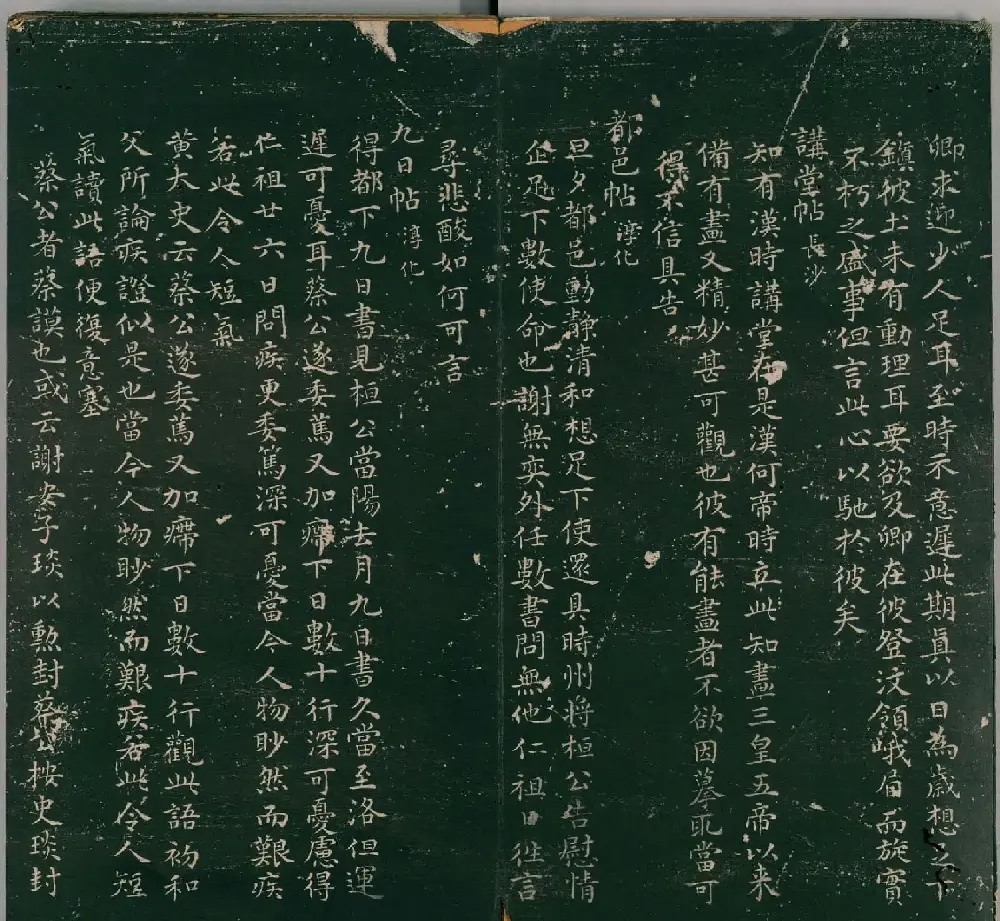 卿求迎少人足耳至時示意遲此期真以日為歲想之下
鎮彼土未有動理耳要欲及卿在彼登汶領峨眉而旋實
不朽之盛事但言此心以馳於彼矣
講堂帖 長沙
知有漢時講堂在是漢何帝時立此知畫三皇五帝以来
備有畫又精妙甚可觀也彼有能畫者不欲因摹取當可
得不信具告
都邑帖 淳化
旦夕都邑動靜清和想足下使還具時州將桓公告慰情
企足下數使命也謝無奕外任數書問無他仁祖日往言
尋悲酸如何可言
九日帖 淳化
得都下九日書見桓公當陽去月九日書久當至洛但運
遲可憂耳蔡公遂委篤又加㿃下日數十行深可憂慮得
仁祖廿六日問疾更委篤深可憂當今人物眇然而艱疾
若此令人短氣
黄太史云蔡公遂委篤又加㿃下日數十行觀此語初和
父所論疾證似是也當今人物眇然而艱疾若此令人短
氣讀此語便復意塞
蔡公者蔡謨也或云謝安子琰以勲封蔡公按史琰封